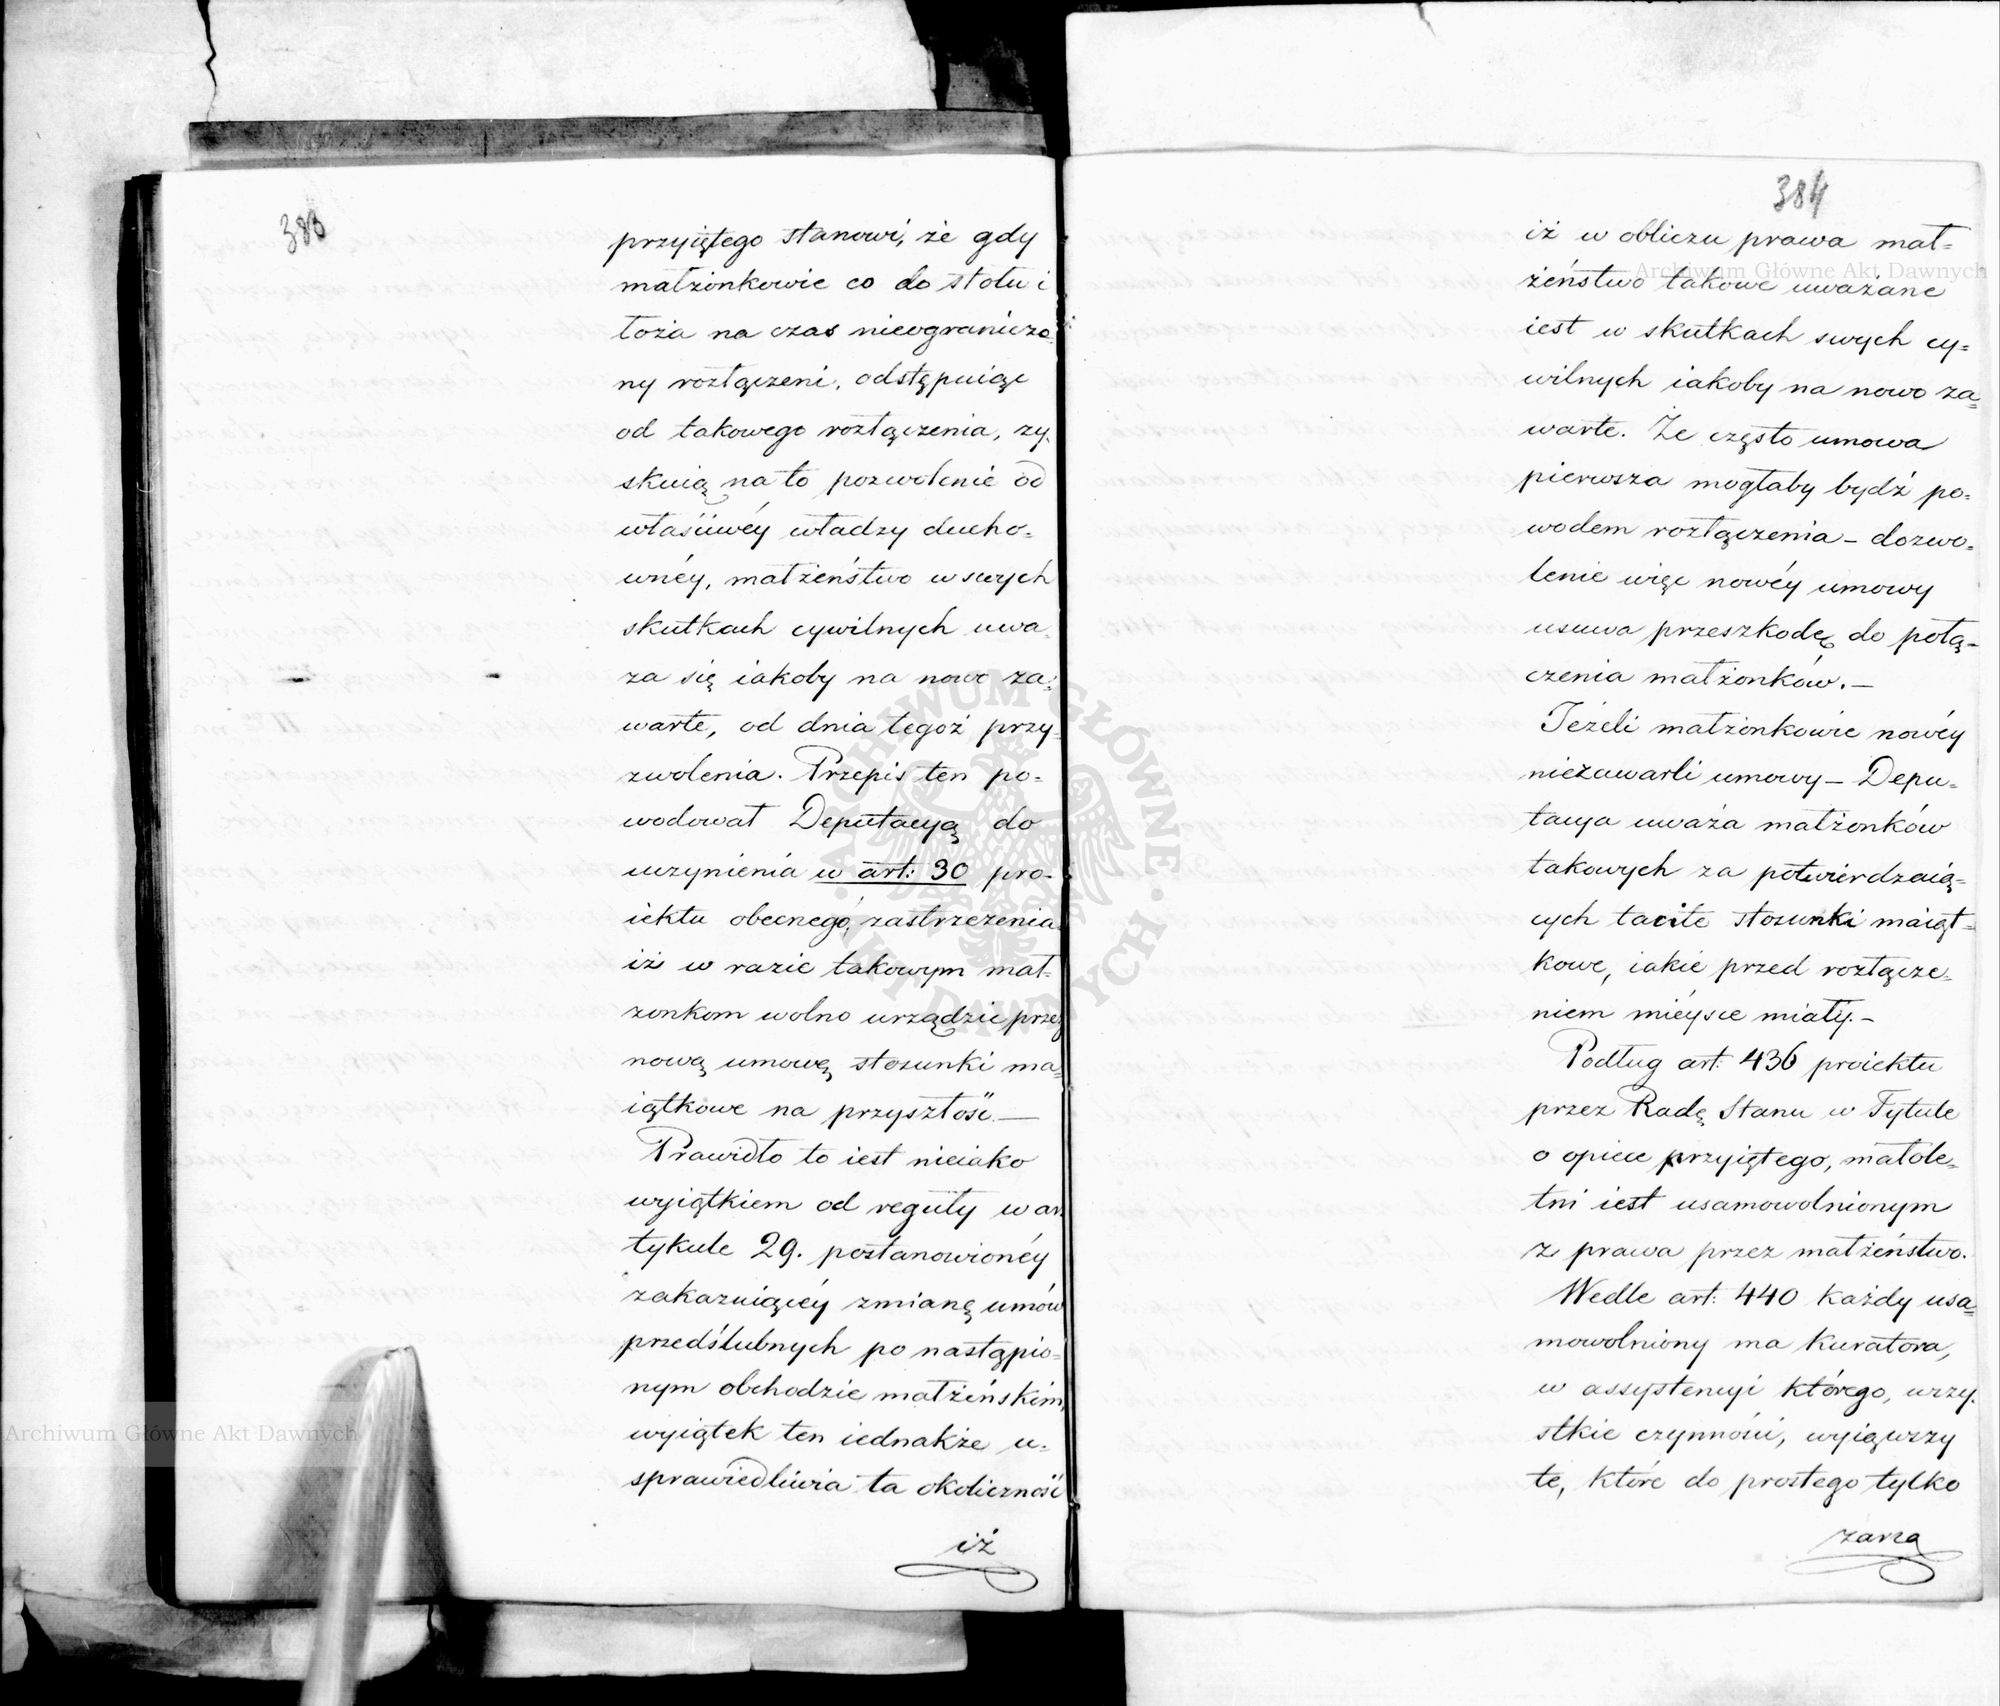 383
przyiętego stanowi, że gdy
małżonkowie co do stołu i
łoża na czas nieograniczo-
ny rozłączeni, odstępuiąc
od takowego rozłączenia, zy-
skuią na to pozwolenie od
właściwéy władzy ducho=
wnéy, małżeństwo w swych
skutkach cywilnych uwa-
ża się iakoby na nowo za-
warte, od dnia tegoż przy-
zwolenia. Przepis ten po=
wodował Deputacyą do
uczynienia w art: 30 pro-
iektu obecnego, zastrzeżenia
iż w razie takowym mał-
żonkom wolno urządzić przez
nową umowę stosunki ma-
iątkowe na przyszłość —
Prawidło to iest nieiako
wyiątkiem od reguły w ar-
tykule 29. postanowionéy
zakazuiącéy zmianę umów
przedślubnych po nastąpio-
nym obchodzie małżeńskim,
wyiątek ten iednakże u-
sprawiedliwia ta okoliczność
iż
384
iż w obliczu prawa mał=
żeństwo takowe uważane
iest w skutkach swych cy=
wilnych iakoby na nowo za=
warte. Że często umowa
pierwsza mogłaby bydź po=
wodem rozłączenia – dozwo=
lenie więc nowéy umowy
usuwa przeszkodę do połą-
czenia małżonków. —
Jeżeli małżonkowie nowéy
niezawarli umowy – Depu-
tacya uważa małżonków
takowych za potwierdzaią=
cych tacite stosunki maiąt=
kowe, iakie przed rozłącze-
niem mieysce miały. —
Podług art: 436 proiektu
przez Radę Stanu w Tytule
o opiece przyiętego, małole-
tni iest usamowolnionym
z prawa przez małżeństwo.
Wedle art: 440 każdy usa=
mowolniony ma Kuratora,
w assystencyi którego, wszy-
stkie czynności, wyiąwszy
te, które do prostego tylko
zarzą
Archiwum Główne Akt Dawnych
Archiwum Główne Akt Dawnych
· ARCHIWUM GŁÓWNE · AKT DAWNYCH